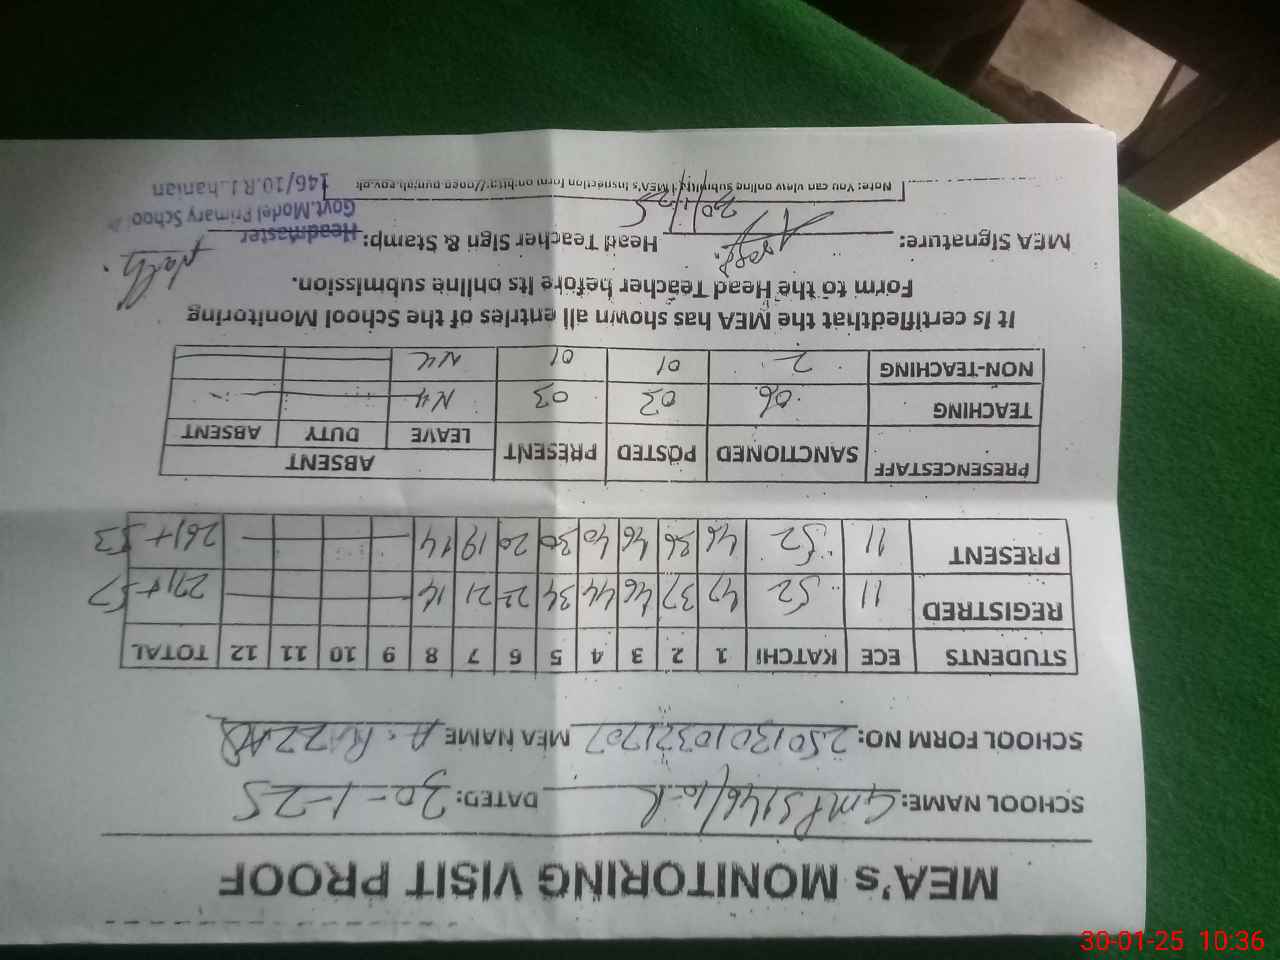 MEA's MONITORING VISIT PROOF
SCHOOL NAME: GMPS 146/10-R DATED: 30-1-25
SCHOOL FORM NO: 25013010321707 MEA NAME A. RAZZAQ
STUDENTS ECE KATCHI 1 2 3 4 5 6 7 8 9 10 11 12 TOTAL
REGISTRED 11 52 47 37 46 44 34 22 21 14 271+57
PRESENT 11 52 46 36 46 40 30 20 19 14 261+53
PRESENCESTAFF SANCTIONED POSTED PRESENT ABSENT
LEAVE DUTY ABSENT
TEACHING 06 03 03
NON-TEACHING 2 01 01
It is certifiedthat the MEA has shown all entries of the School Monitoring
Form to the Head Teacher before its online submission.
MEA Signature: Head Teacher Sign & Stamp: Headmaster
30/1/25
Govt.Model Primary Schoo
146/10.R J.hanian
Note: You can view online Submitted MEA's inspection form on http://open.punjab.gov.pk
30-01-25 10:36